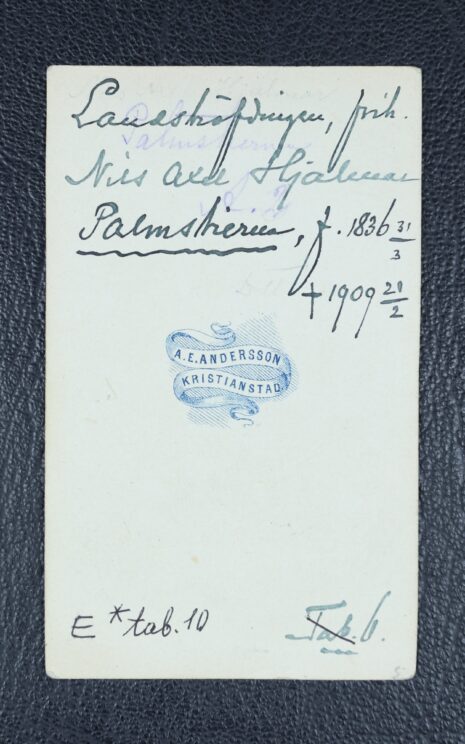 Landshöfdingen, frih.
Nils Axel Hjalmar
Palmstierna, f. 1836 31/3
† 1909 21/2
A. E. ANDERSSON
KRISTIANSTAD
E * tab. 10
Tab. 6.